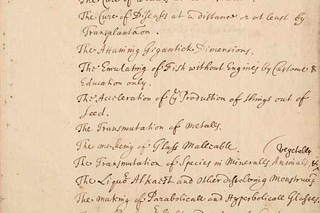 The Cure of Diseases at a distance or at least by
Transplantation.
The Attaining Gigantick Dimensions.
The Emulating of Fish without Engines by Custome &
Education only.
The Acceleration of ye Production of things out of
Seed.
The Transmutation of metalls.
The makeing of Glass Maleable.
Vegetables
The Transmutation of Species in Mineralls, Animals &
The Liquid Alkaest and Other dissolving Menstruums
The making of Parabolicall and Hyperbolicall Glasses.